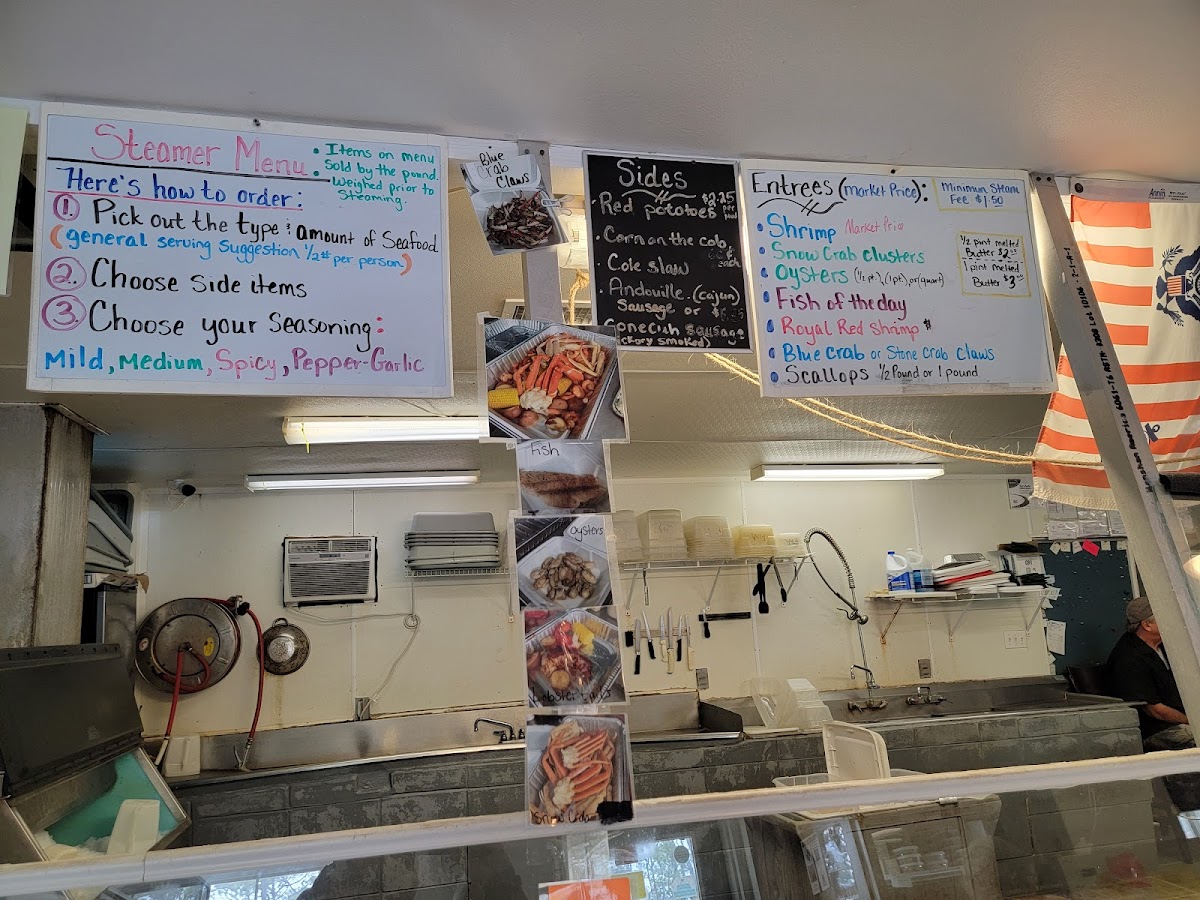 Steamer Menu
• Items on menu
• Sold by the pound.
• Weighed prior to
Steaming.
Here's how to order:
1. Pick out the type & amount of Seafood
(general serving Suggestion ½# per person)
2. Choose Side items
3. Choose your Seasoning:
Mild, Medium, Spicy, Pepper-Garlic
Blue
Crab
Claws
Sides
• Red potatoes $2.25 per
• Corn on the cob
each
• Cole slaw
• Andouille (cajun)
Sausage or
Conecuh sausage
(hickory smoked)
Entrees (market Price):
Minimum Steam
Fee $1.50
• Shrimp Market Price
• Snow Crab clusters
• Oysters (½ pt), (1pt), or (quart)
½ pint melted
Butter $2
1 pint melted
Butter $3
• Fish of the day
• Royal Red Shrimp $
• Blue Crab or Stone crab Claws
• Scallops ½ Pound or 1 pound
Fish
Oysters
Lobster Tails
Snow Crab
Annin